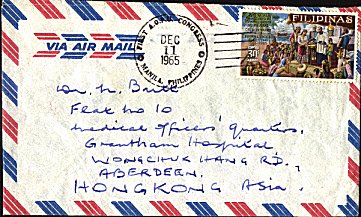 FILIPINAS
30
FIRST A.O. CONGRESS
DEC
11
1965
MANILA, PHILIPPINES
VIA AIR MAIL
Dr. N.
Flat No 10
Medical Officers' Quarters,
Grantham Hospital,
WONGCHUK HANG RD.,
ABERDEEN.
HONGKONG Asia.